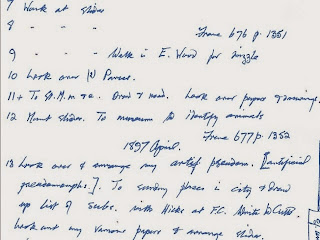 7 Work at slides
8 " " "
Frame 676 p. 1351
9 " " " Walk i E. Wood for jingle
10 Look over W Parcel.
11+ To Draw & read. Look over papers & drawings.
12 Mount slides. To museum to identify animals
Frame 677 p. 1352
1897 April.
13 Look over & arrange my artif pseudom. [artificial
pseudomorphs.]. To sundry places i city & draw
up list of subs. with Hicks at F.C. Write
Look out my various papers & arrange slides.